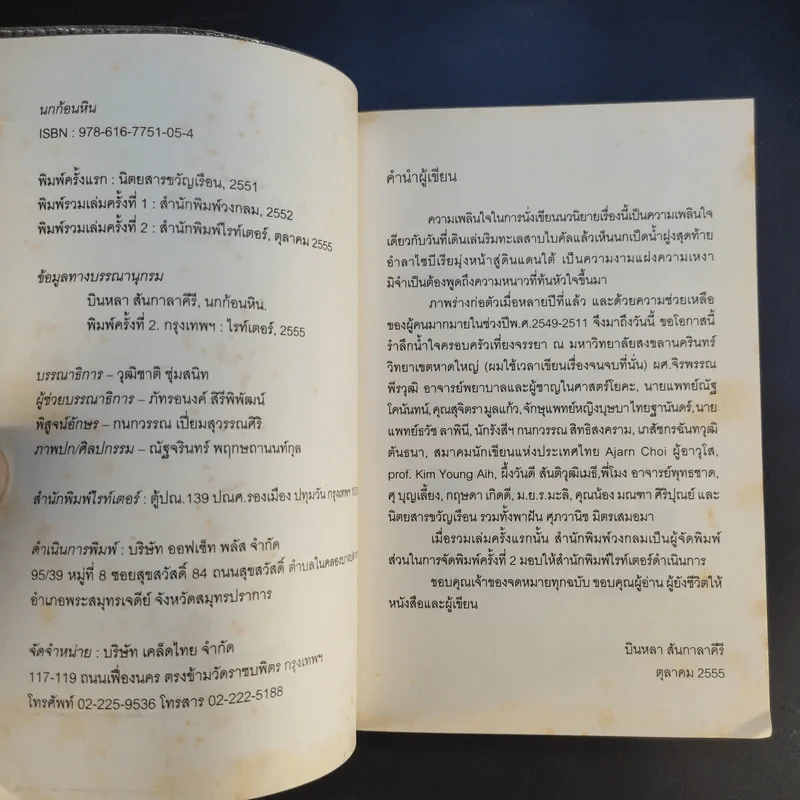 นกก้อนหิน
ISBN : 978-616-7751-05-4
พิมพ์ครั้งแรก : นิตยสารขวัญเรือน, 2551
พิมพ์รวมเล่มครั้งที่ 1 : สำนักพิมพ์วงกลม, 2552
พิมพ์รวมเล่มครั้งที่ 2 : สำนักพิมพ์ไรท์เตอร์, ตุลาคม 2555
ข้อมูลทางบรรณานุกรม
บินหลา สันกาลาคีรี, นกก้อนหิน.
พิมพ์ครั้งที่ 2. กรุงเทพฯ : ไรท์เตอร์, 2555
บรรณาธิการ – วุฒิชาติ ชุ่มสนิท
ผู้ช่วยบรรณาธิการ – ภัทรอนงค์ สิรีพิพัฒน์
พิสูจน์อักษร – กนกวรรณ เปี่ยมสุวรรณศิริ
ภาพปก/ศิลปกรรม – ณัฐจรินทร์ พฤกษถานนท์กุล
สำนักพิมพ์ไรท์เตอร์ : ตู้ปณ.139 ปณศ.รองเมือง ปทุมวัน กรุงเทพฯ
ดำเนินการพิมพ์ : บริษัท ออฟเซ็ท พลัส จำกัด
95/39 หมู่ที่ 8 ซอยสุขสวัสดิ์ 84 ถนนสุขสวัสดิ์ ตำบลในคลองบางปลากด
อำเภอพระสมุทรเจดีย์ จังหวัดสมุทรปราการ
จัดจำหน่าย : บริษัท เคล็ดไทย จำกัด
117-119 ถนนเฟื่องนคร ตรงข้ามวัดราชบพิตร กรุงเทพฯ
โทรศัพท์ 02-225-9536 โทรสาร 02-222-5188
คำนำผู้เขียน
ความเพลินใจในการนั่งเขียนนวนิยายเรื่องนี้เป็นความเพลินใจ
เดียวกับวันที่เดินเล่นริมทะเลสาบไบคัลแล้วเห็นนกเป็ดน้ำฝูงสุดท้าย
อำลาไซบีเรียมุ่งหน้าสู่ดินแดนใต้ เป็นความงามแฝงความเหงา
มิจำเป็นต้องพูดถึงความหนาวที่ท้นหัวใจขึ้นมา
ภาพร่างก่อตัวเมื่อหลายปีที่แล้ว และด้วยความช่วยเหลือ
ของผู้คนมากมายในช่วงปีพ.ศ.2549-2511 จึงมาถึงวันนี้ ขอโอกาสนี้
รำลึกน้ำใจครอบครัวเที่ยงจรรยา ณ มหาวิทยาลัยสงขลานครินทร์
วิทยาเขตหาดใหญ่ (ผมใช้เวลาเขียนเรื่องจนจบที่นั่น) ผศ.จิรพรรณ
พีรวุฒิ อาจารย์พยาบาลและผู้ชาญในศาสตร์โยคะ, นายแพทย์ณัฐ
โคนันทน์, คุณสุจิตรามูลแก้ว,จักษุแพทย์หญิงบุษบาไทยฐานันดร์,นาย
แพทย์ธวัช ลาพินี, นักรังสีฯ กนกวรรณ สิทธิสงคราม, เภสัชกรฉันทวุฒิ
ตันธนา, สมาคมนักเขียนแห่งประเทศไทย Ajarn Choi ผู้อาวุโส,
prof. Kim Young Aih, ผึ้งวันดี สันติวุฒิเมธี,พี่โมง อาจารย์พุทธชาด,
ศุ บุญเลี้ยง, กฤษดา เกิดดี, ม.ย.ร.มะลิ, คุณน้อง มณฑา ศิริปุณย์ และ
นิตยสารขวัญเรือน รวมทั้งพาฝัน ศุภวานิช มิตรเสมอมา
เมื่อรวมเล่มครั้งแรกนั้น สำนักพิมพ์วงกลมเป็นผู้จัดพิมพ์
ส่วนในการจัดพิมพ์ครั้งที่ 2 มอบให้สำนักพิมพ์ไรท์เตอร์ดำเนินการ
ขอบคุณเจ้าของจดหมายทุกฉบับ ขอบคุณผู้อ่าน ผู้ยังชีวิตให้
หนังสือและผู้เขียน
บินหลา สันกาลาคีรี
ตุลาคม 2555